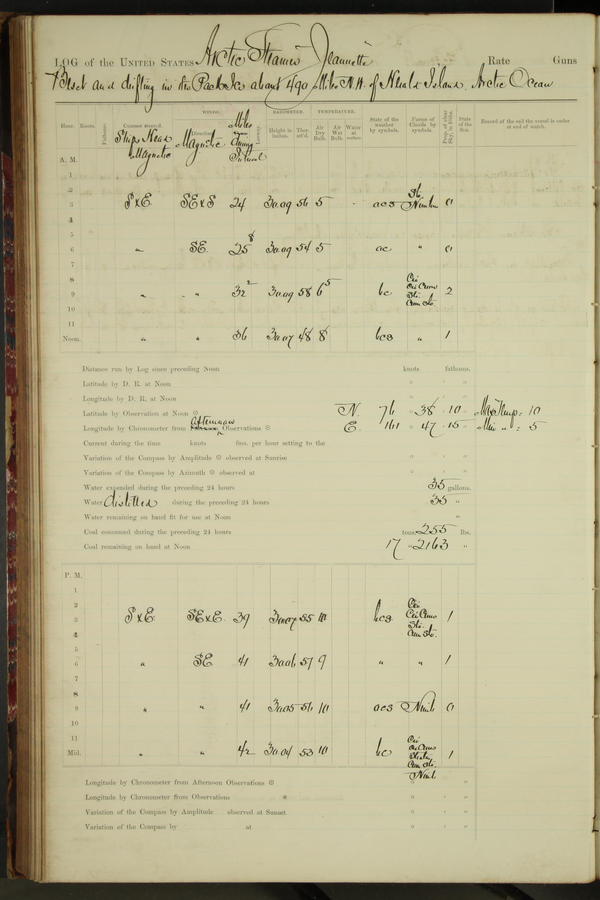 LOG of the UNITED STATES Arctic Steamer Jeannette Rate Guns
Beset and drifting in the Pack Ice about 490 Miles N.W. of Herald Island, Arctic Ocean
Hour. Knots. Fathoms. Courses steered. WINDS. BAROMETER. TEMPERATURE. State of the weather by symbols. Forms of Clouds by symbols. Prop. of clear Sky, in 10ths. State of the Sea. Record of the sail the vessel is under at end of watch.
Direction. Height in inches. Ther. att'd. Air Dry Bulb. Air Wet Bulb. Water at surface.
Ships Head Magnetic Magnetic Miles During Interval
A. M.
1
2
3 S x E. SE x S 24 30.09 56 5 ocs St. Nimbus 0
4
5
6 " SE. 25 8 30.09 54 5 oc " 0
7
8
9 " " 32 2 30.09 58 6 5 bc Cir Cir Cum Str. Cum St. 2
10
11
Noon. " " 36 30.07 48 8 bcs " 1
Distance run by Log since preceding Noon knots fathoms.
Latitude by D. R. at Noon
Longitude by D. R. at Noon
Latitude by Observation at Noon N. 76 38 10 Max Temp. = 10
Longitude by Chronometer from afternoon Observations E. 161 47 15 Min " = 5
Current during the time knots fms. per hour setting to the
Variation of the Compass by Amplitude observed at Sunrise
Variation of the Compass by Azimuth observed at
Water expended during the preceding 24 hours 35 gallons.
Water distilled during the preceding 24 hours 35 "
Water remaining on hand fit for use at Noon "
Coal consumed during the preceding 24 hours tons, 255 lbs.
Coal remaining on hand at Noon 17 " 2163 "
P. M.
1
2
3 S x E. SE x E. 39 30.07 55 10 bcs Cir Cir Cum Str. Cum St. 1
4
5
6 " SE 41 30.06 57 9 " " 1
7
8
9 " " 41 30.05 56 10 ocs Nimb 0
10
11
Mid. " " 42 30.04 53 10 bc Cir Cir Cum Cum St. Nimb. 1
Longitude by Chronometer from Afternoon Observations
Longitude by Chronometer from Observations
Variation of the Compass by Amplitude observed at Sunset
Variation of the Compass by at